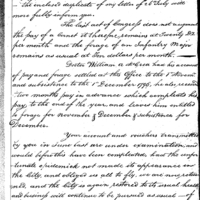 - the inclosed duplicate of my letter of 15 July will
more fully inform you.
The last act of Congress does not augment
the pay of a Surgeon it therefore remains at Twenty Ds
per month and the forage of an Infantry Major
remains as usual at Ten dollars per month -
Doctor William McCrea has his accounts
of pay and forage settled at this Office to the 1st
and subsistence to the 1 December 1794, he also received
two months pay in advance which completes his
pay, to the end of the year, and leaves him entitled
to forage for November & December & subsistence for
December.
Your account and vouchers transmitted
by you in June last are under examination and
would before this have been completed, had the
made its appearance in
the City, and obliged us all to fly, we are now
and, the City is again restored to its usual health
and business will continue to be pursued as usual - of